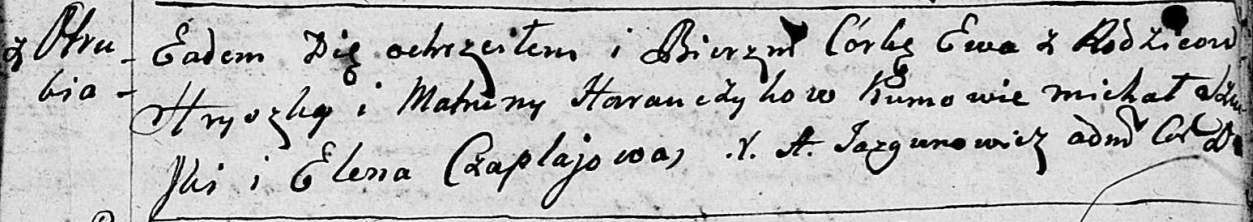 z Otru-
bia - Eadem Die ochrzciłem i Bierzm Córkę Ewa z Rodzicow
Hryszka i Matruny Harauczykow Kumowie michał
ski i Elena Czaplajowa, X. A. Jazgunowicz adm